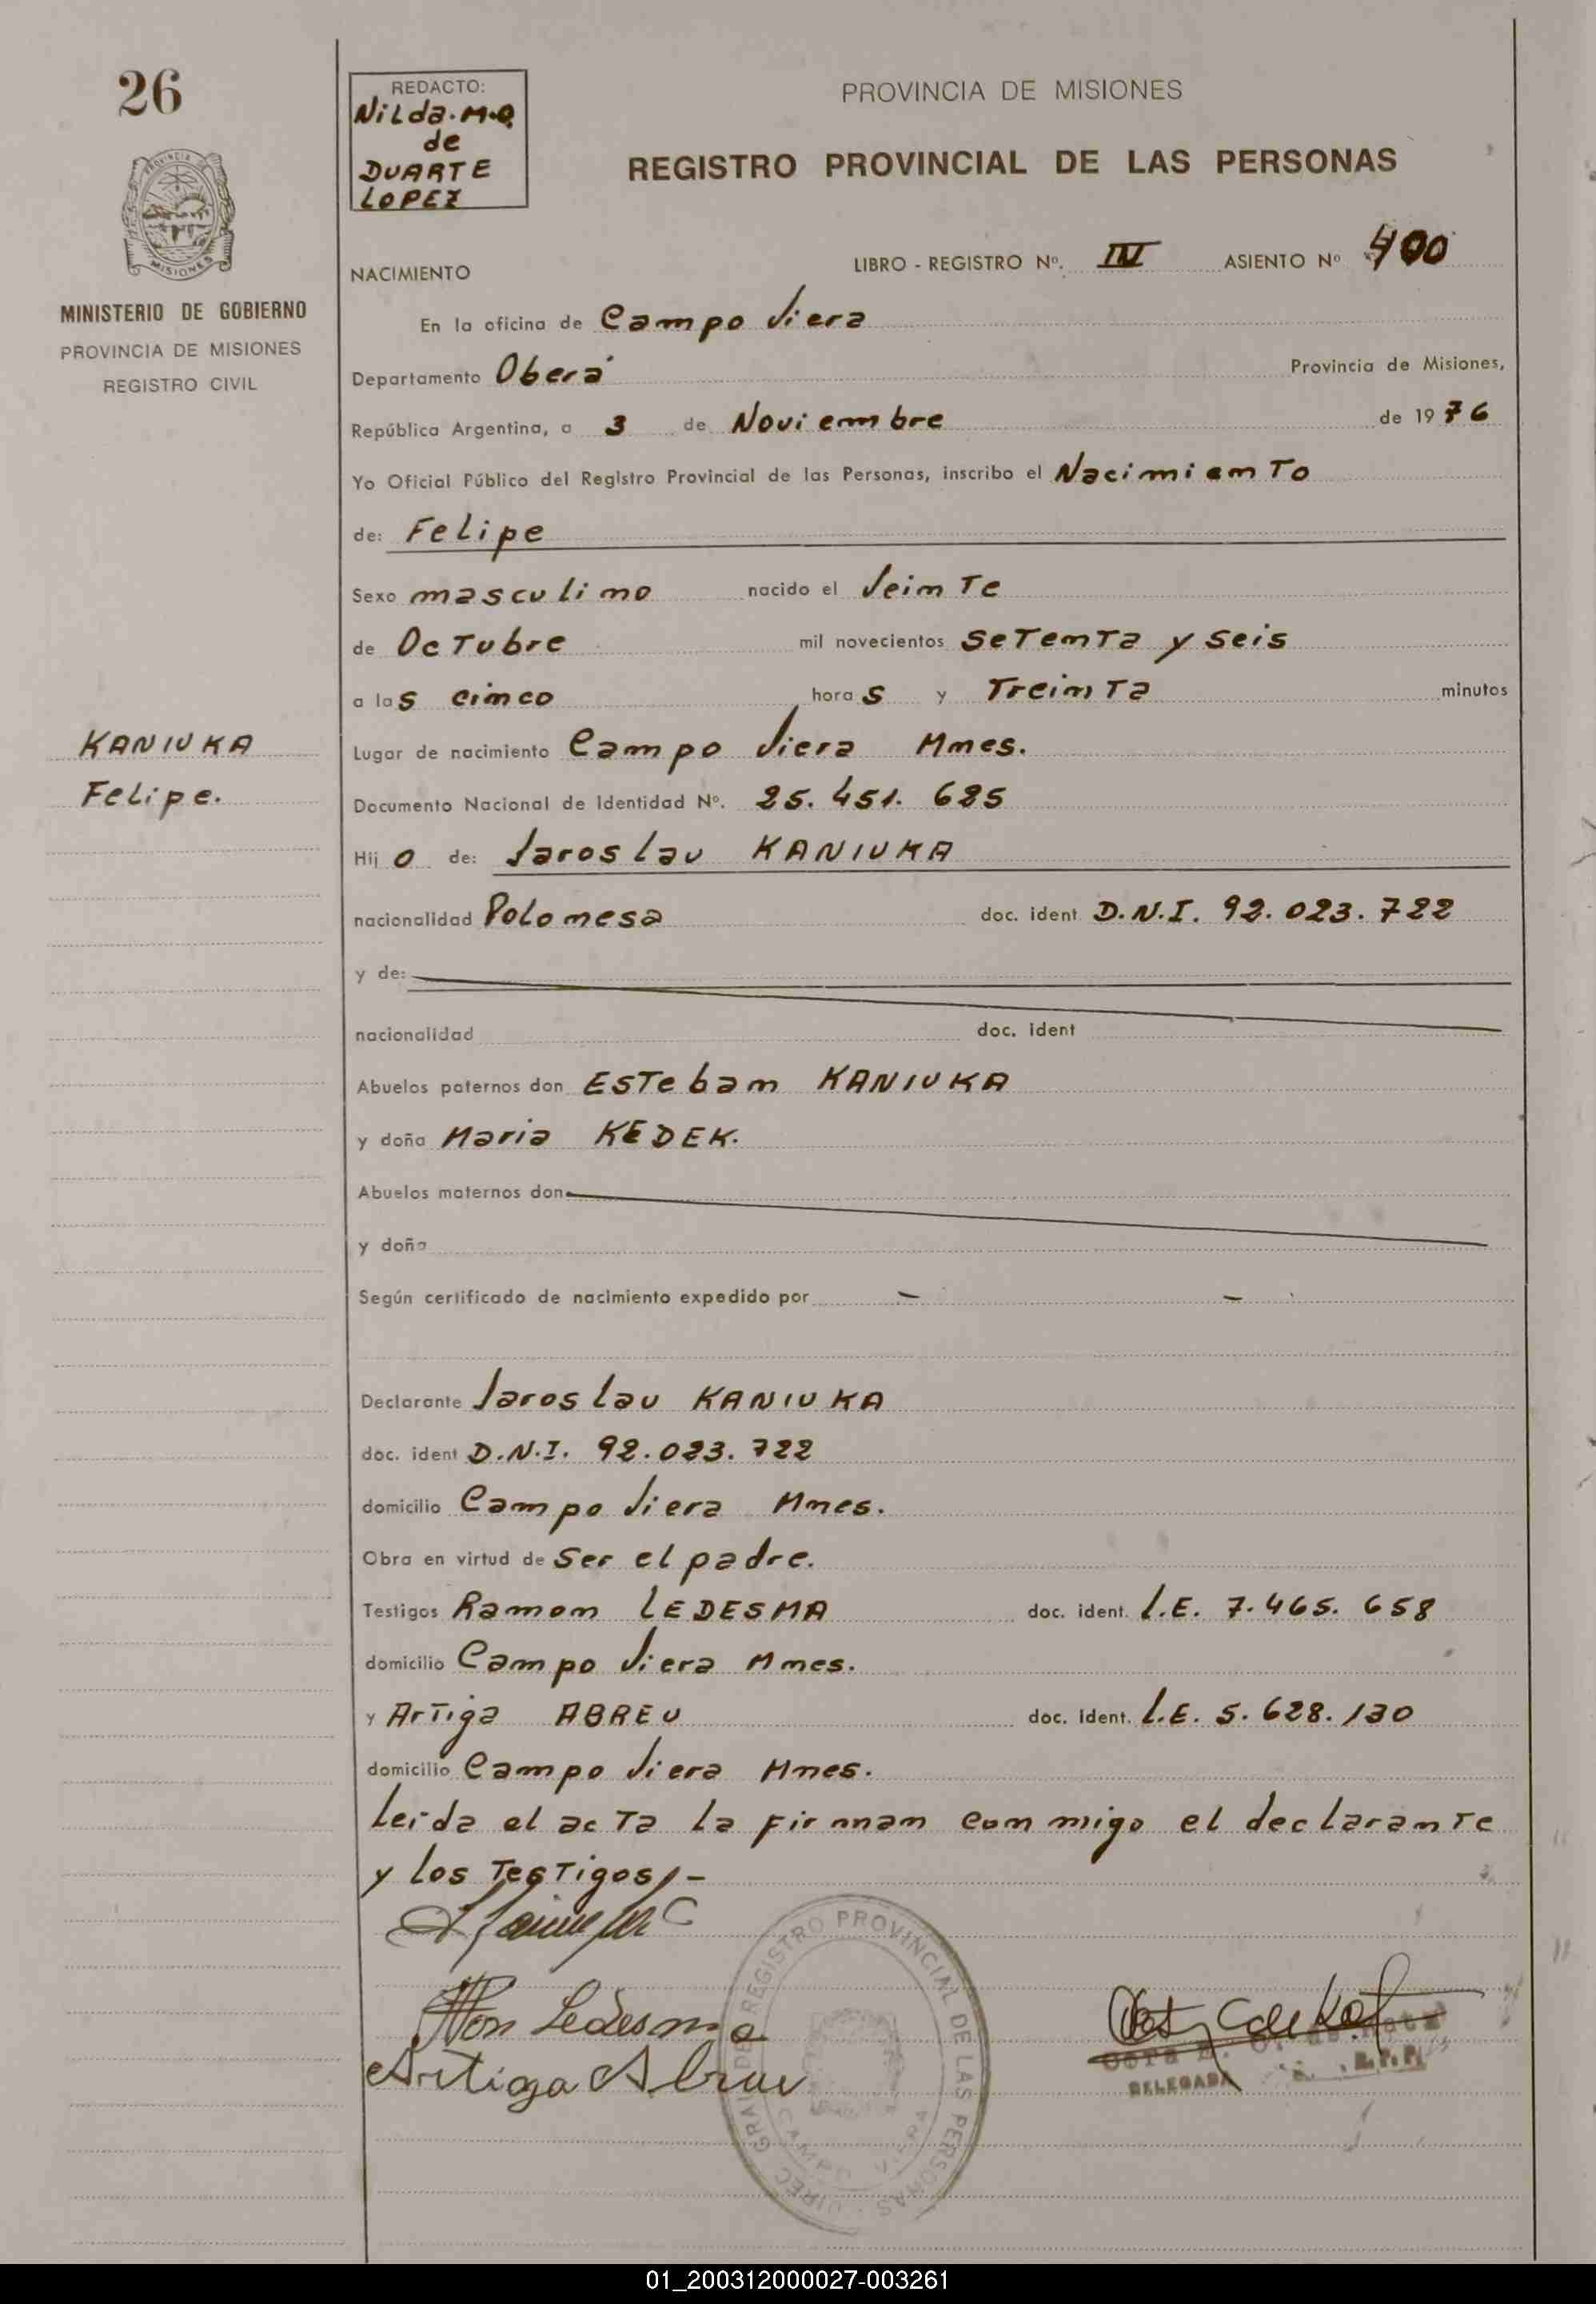 26
REDACTO:
Nilda.M.O.
de
DUARTE
LOPEZ
PROVINCIA DE MISIONES
REGISTRO PROVINCIAL DE LAS PERSONAS
PROVINCIA DE
MISIONES
MINISTERIO DE GOBIERNO
PROVINCIA DE MISIONES
REGISTRO CIVIL
NACIMIENTO LIBRO - REGISTRO Nº. IV ASIENTO Nº 400
En la oficina de Campo Viera
Departamento Oberá Provincia de Misiones,
República Argentina, a 3 de Noviembre de 1976
Yo Oficial Público del Registro Provincial de las Personas, inscribo el Nacimiento
de: Felipe
Sexo masculino nacido el Veinte
de Octubre mil novecientos Setenta y seis
a las cinco horas y Treinta minutos
KANIUKA
Felipe.
Lugar de nacimiento Campo Viera Mnes.
Documento Nacional de Identidad Nº. 25.451.625
Hijo de: Jaroslau KANIUKA
nacionalidad Polonesa doc. ident D.N.I. 92.023.722
y de:
nacionalidad doc. ident
Abuelos paternos don Esteban KANIUKA
y doña Maria KEDEK.
Abuelos maternos don
y doña
Según certificado de nacimiento expedido por - -
Declarante Jaroslau KANIUKA
doc. ident D.N.I. 92.023.722
domicilio Campo Viera Mnes.
Obra en virtud de Ser el padre.
Testigos Ramon LEDESMA doc. ident. L.E. 7.465.658
domicilio Campo Viera Mnes.
y Artiga ABREU doc. ident. L.E. 5.628.130
domicilio Campo Viera Mnes.
Leida el acta la firman conmigo el declarante
y los Testigos,-
Ledesma
Artiga Abreu
DIREC. GRAL. DE REGISTRO PROVINCIAL DE LAS PERSONAS
CAMPO VIERA
DELEGADA
01_200312000027-003261